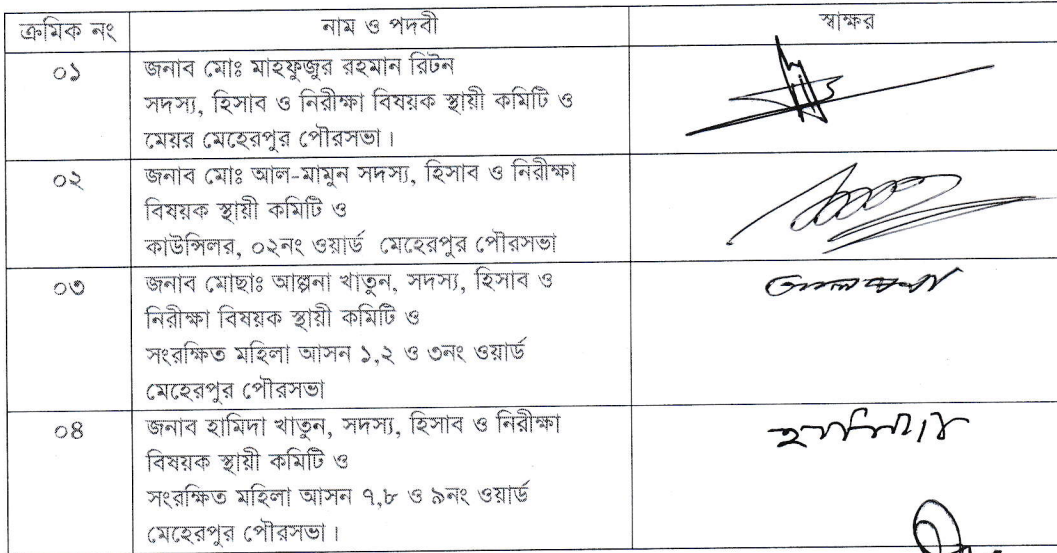 ক্রমিক নং নাম ও পদবী স্বাক্ষর
০১ জনাব মোঃ মাহফুজুর রহমান রিটন
সদস্য, হিসাব ও নিরীক্ষা বিষয়ক স্থায়ী কমিটি ও
মেয়র মেহেরপুর পৌরসভা।
০২ জনাব মোঃ আল-মামুন সদস্য, হিসাব ও নিরীক্ষা
বিষয়ক স্থায়ী কমিটি ও
কাউন্সিলর, ০২নং ওয়ার্ড মেহেরপুর পৌরসভা
০৩ জনাব মোছাঃ আল্পনা খাতুন, সদস্য, হিসাব ও
নিরীক্ষা বিষয়ক স্থায়ী কমিটি ও
সংরক্ষিত মহিলা আসন ১,২ ও ৩নং ওয়ার্ড
মেহেরপুর পৌরসভা
০৪ জনাব হামিদা খাতুন, সদস্য, হিসাব ও নিরীক্ষা
বিষয়ক স্থায়ী কমিটি ও
সংরক্ষিত মহিলা আসন ৭,৮ ও ৯নং ওয়ার্ড
মেহেরপুর পৌরসভা।